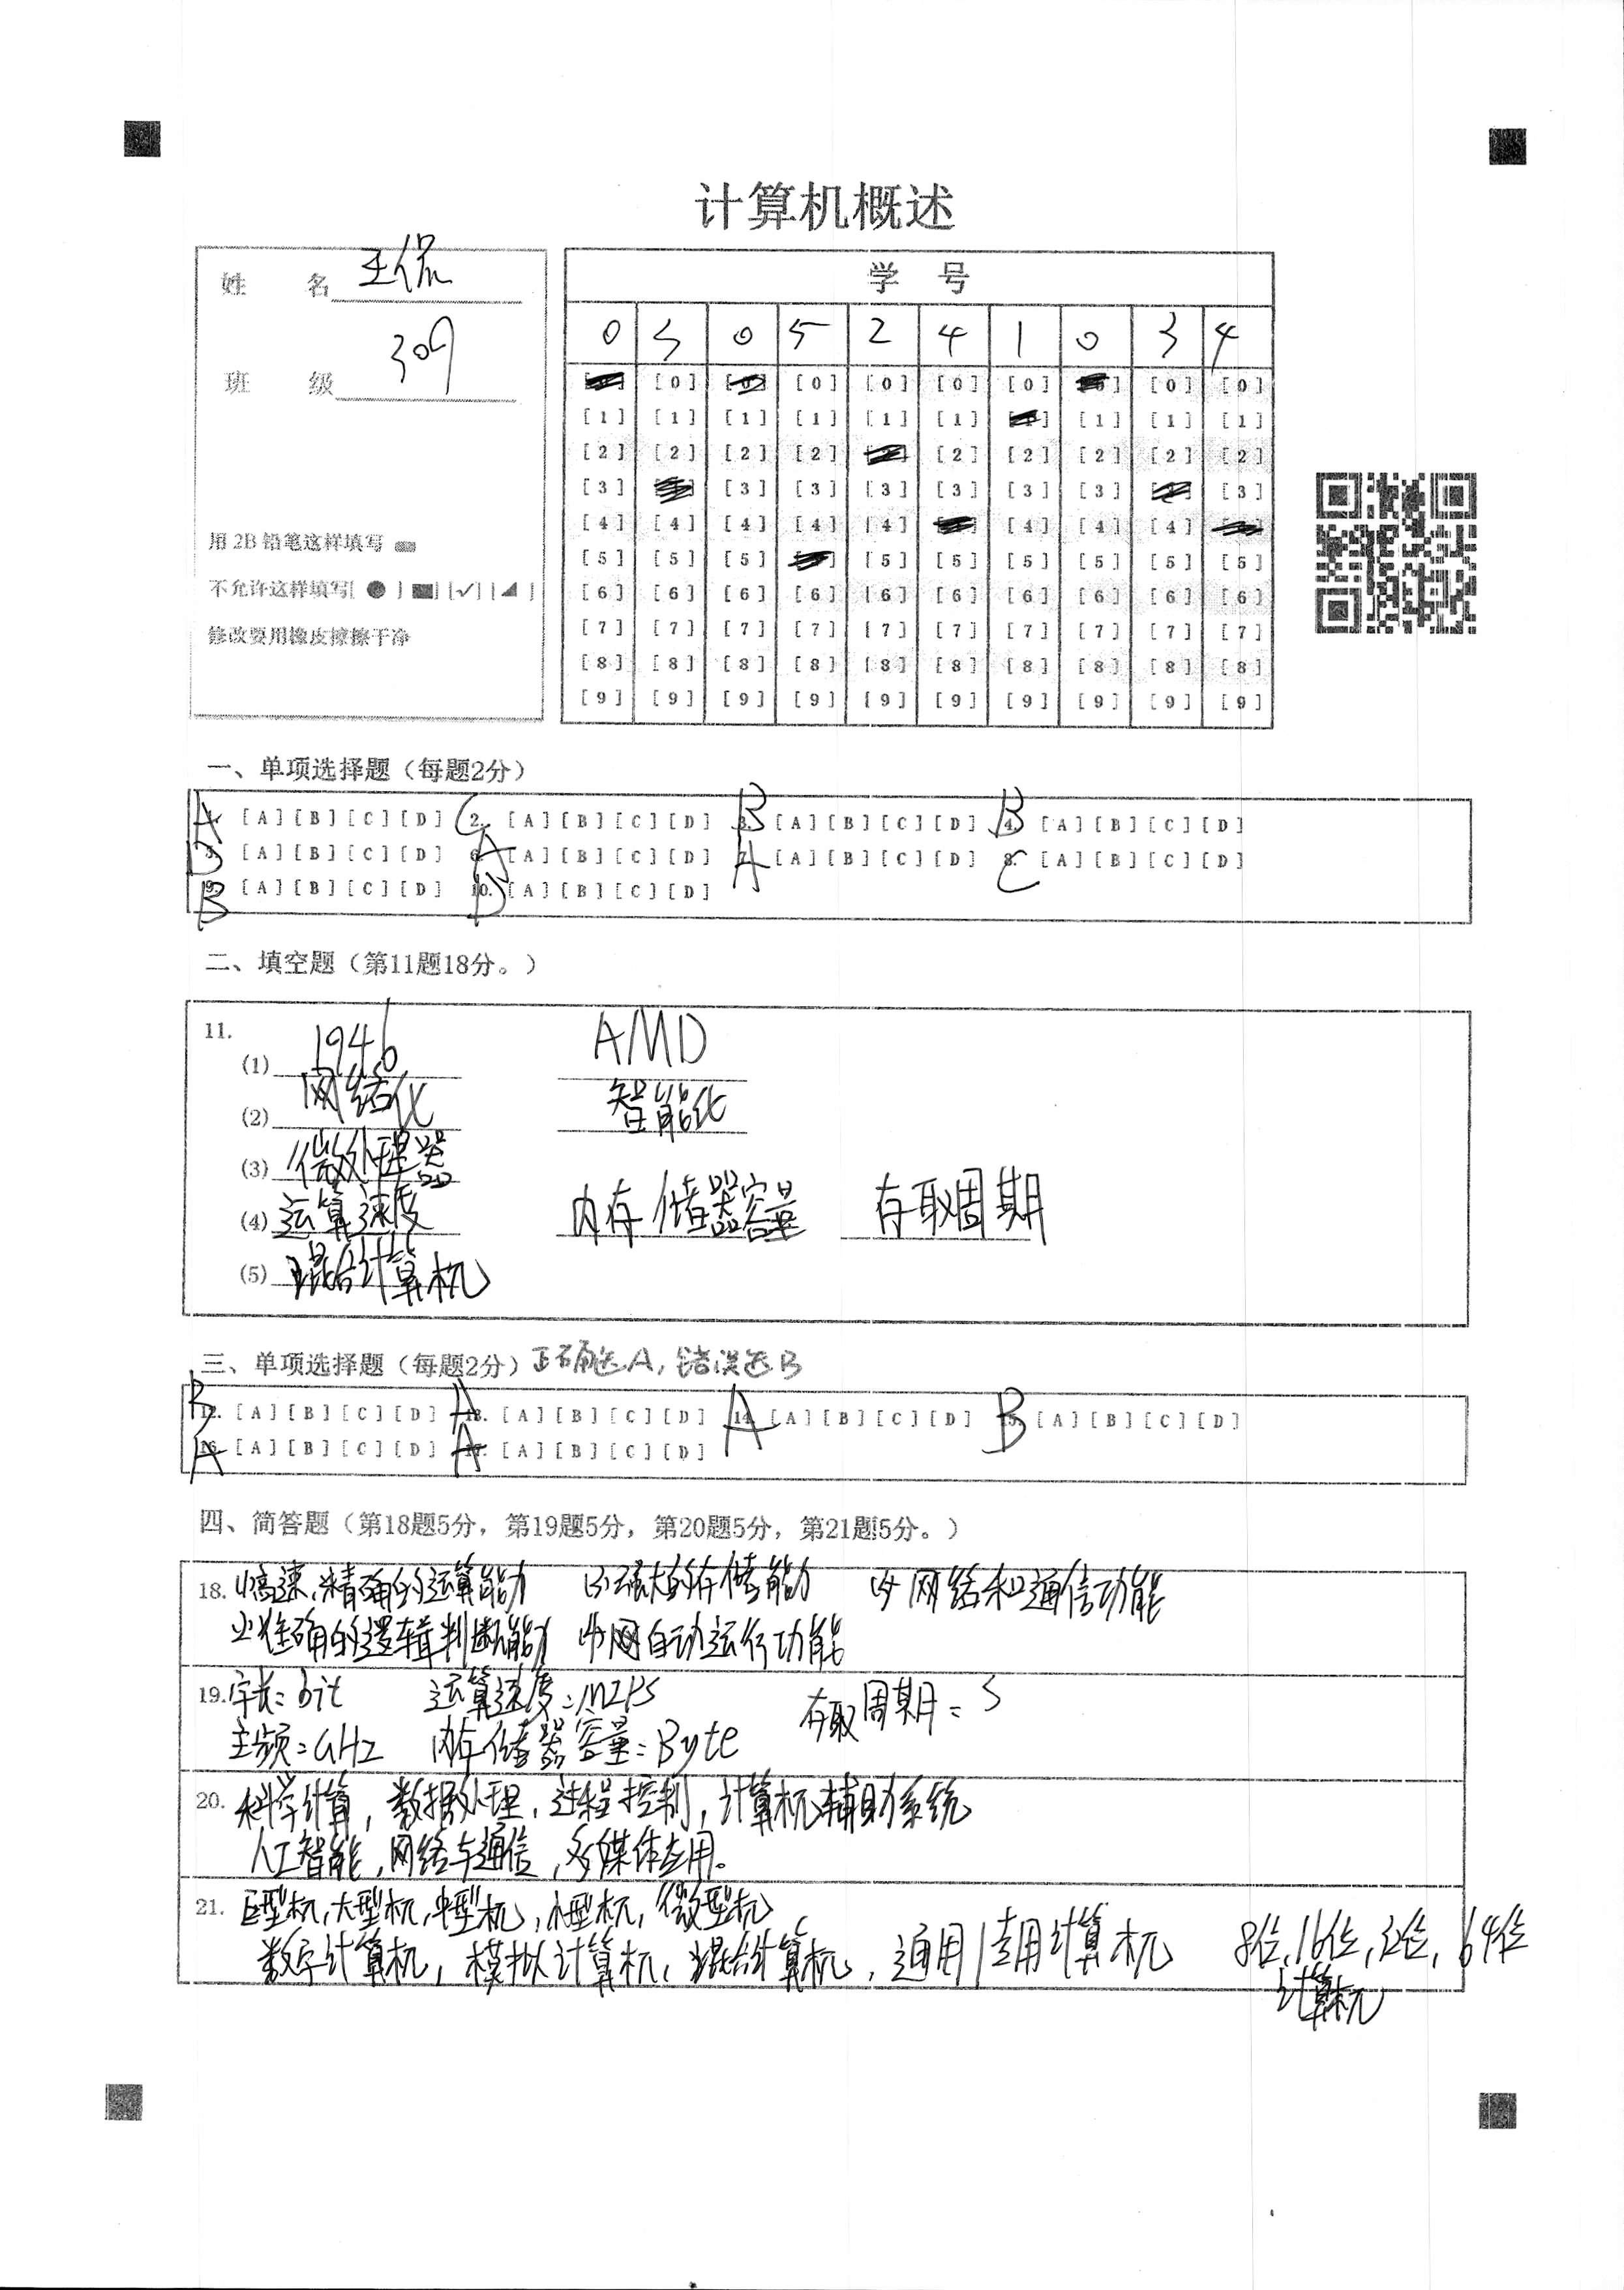 计算机概述
姓 名 王侃
班 级 309
用 2B 铅笔这样填写
不允许这样填写[ ● ] [✓] [◢ ]
修改要用橡皮擦擦干净
学 号
0 3 0 5 2 4 1 0 3 4
[0] [0] [0] [0] [0] [0]
[1] [1] [1] [1] [1] [1] [1] [1] [1]
[2] [2] [2] [2] [2] [2] [2] [2] [2]
[3] [3] [3] [3] [3] [3] [3] [3]
[4] [4] [4] [4] [4] [4] [4] [4]
[5] [5] [5] [5] [5] [5] [5] [5] [5]
[6] [6] [6] [6] [6] [6] [6] [6] [6] [6]
[7] [7] [7] [7] [7] [7] [7] [7] [7] [7]
[8] [8] [8] [8] [8] [8] [8] [8] [8] [8]
[9] [9] [9] [9] [9] [9] [9] [9] [9] [9]
一、单项选择题（每题2分）
A 1. [A] [B] [C] [D] C 2. [A] [B] [C] [D] B 3. [A] [B] [C] [D] B 4. [A] [B] [C] [D]
D 5. [A] [B] [C] [D] A 6. [A] [B] [C] [D] A 7. [A] [B] [C] [D] C 8. [A] [B] [C] [D]
B 9. [A] [B] [C] [D] D 10. [A] [B] [C] [D]
二、填空题（第11题18分。）
11.
(1) 1946 AMD
(2) 网络化 智能化
(3) 微处理器
(4) 运算速度 内存储器容量 存取周期
(5) 混合计算机
三、单项选择题（每题2分）正确选A，错误选B
B 12. [A] [B] [C] [D] A 13. [A] [B] [C] [D] A 14. [A] [B] [C] [D] B 15. [A] [B] [C] [D]
A 16. [A] [B] [C] [D] A 17. [A] [B] [C] [D]
四、简答题（第18题5分，第19题5分，第20题5分，第21题5分。）
18. (1)高速、精确的运算能力 (3)强大的存储能力 (5)网络和通信功能
(2)准确的逻辑判断能力 (4)自动运行功能
19. 字长=bit 运算速度=MIPS 存取周期=S
主频=GHz 内存储器容量=Byte
20. 科学计算，数据处理，过程控制，计算机辅助系统
人工智能，网络与通信，多媒体应用。
21. 巨型机，大型机，中型机，小型机，微型机
数字计算机，模拟计算机，混合计算机，通用/专用计算机 8位，16位，32位，64位
计算机